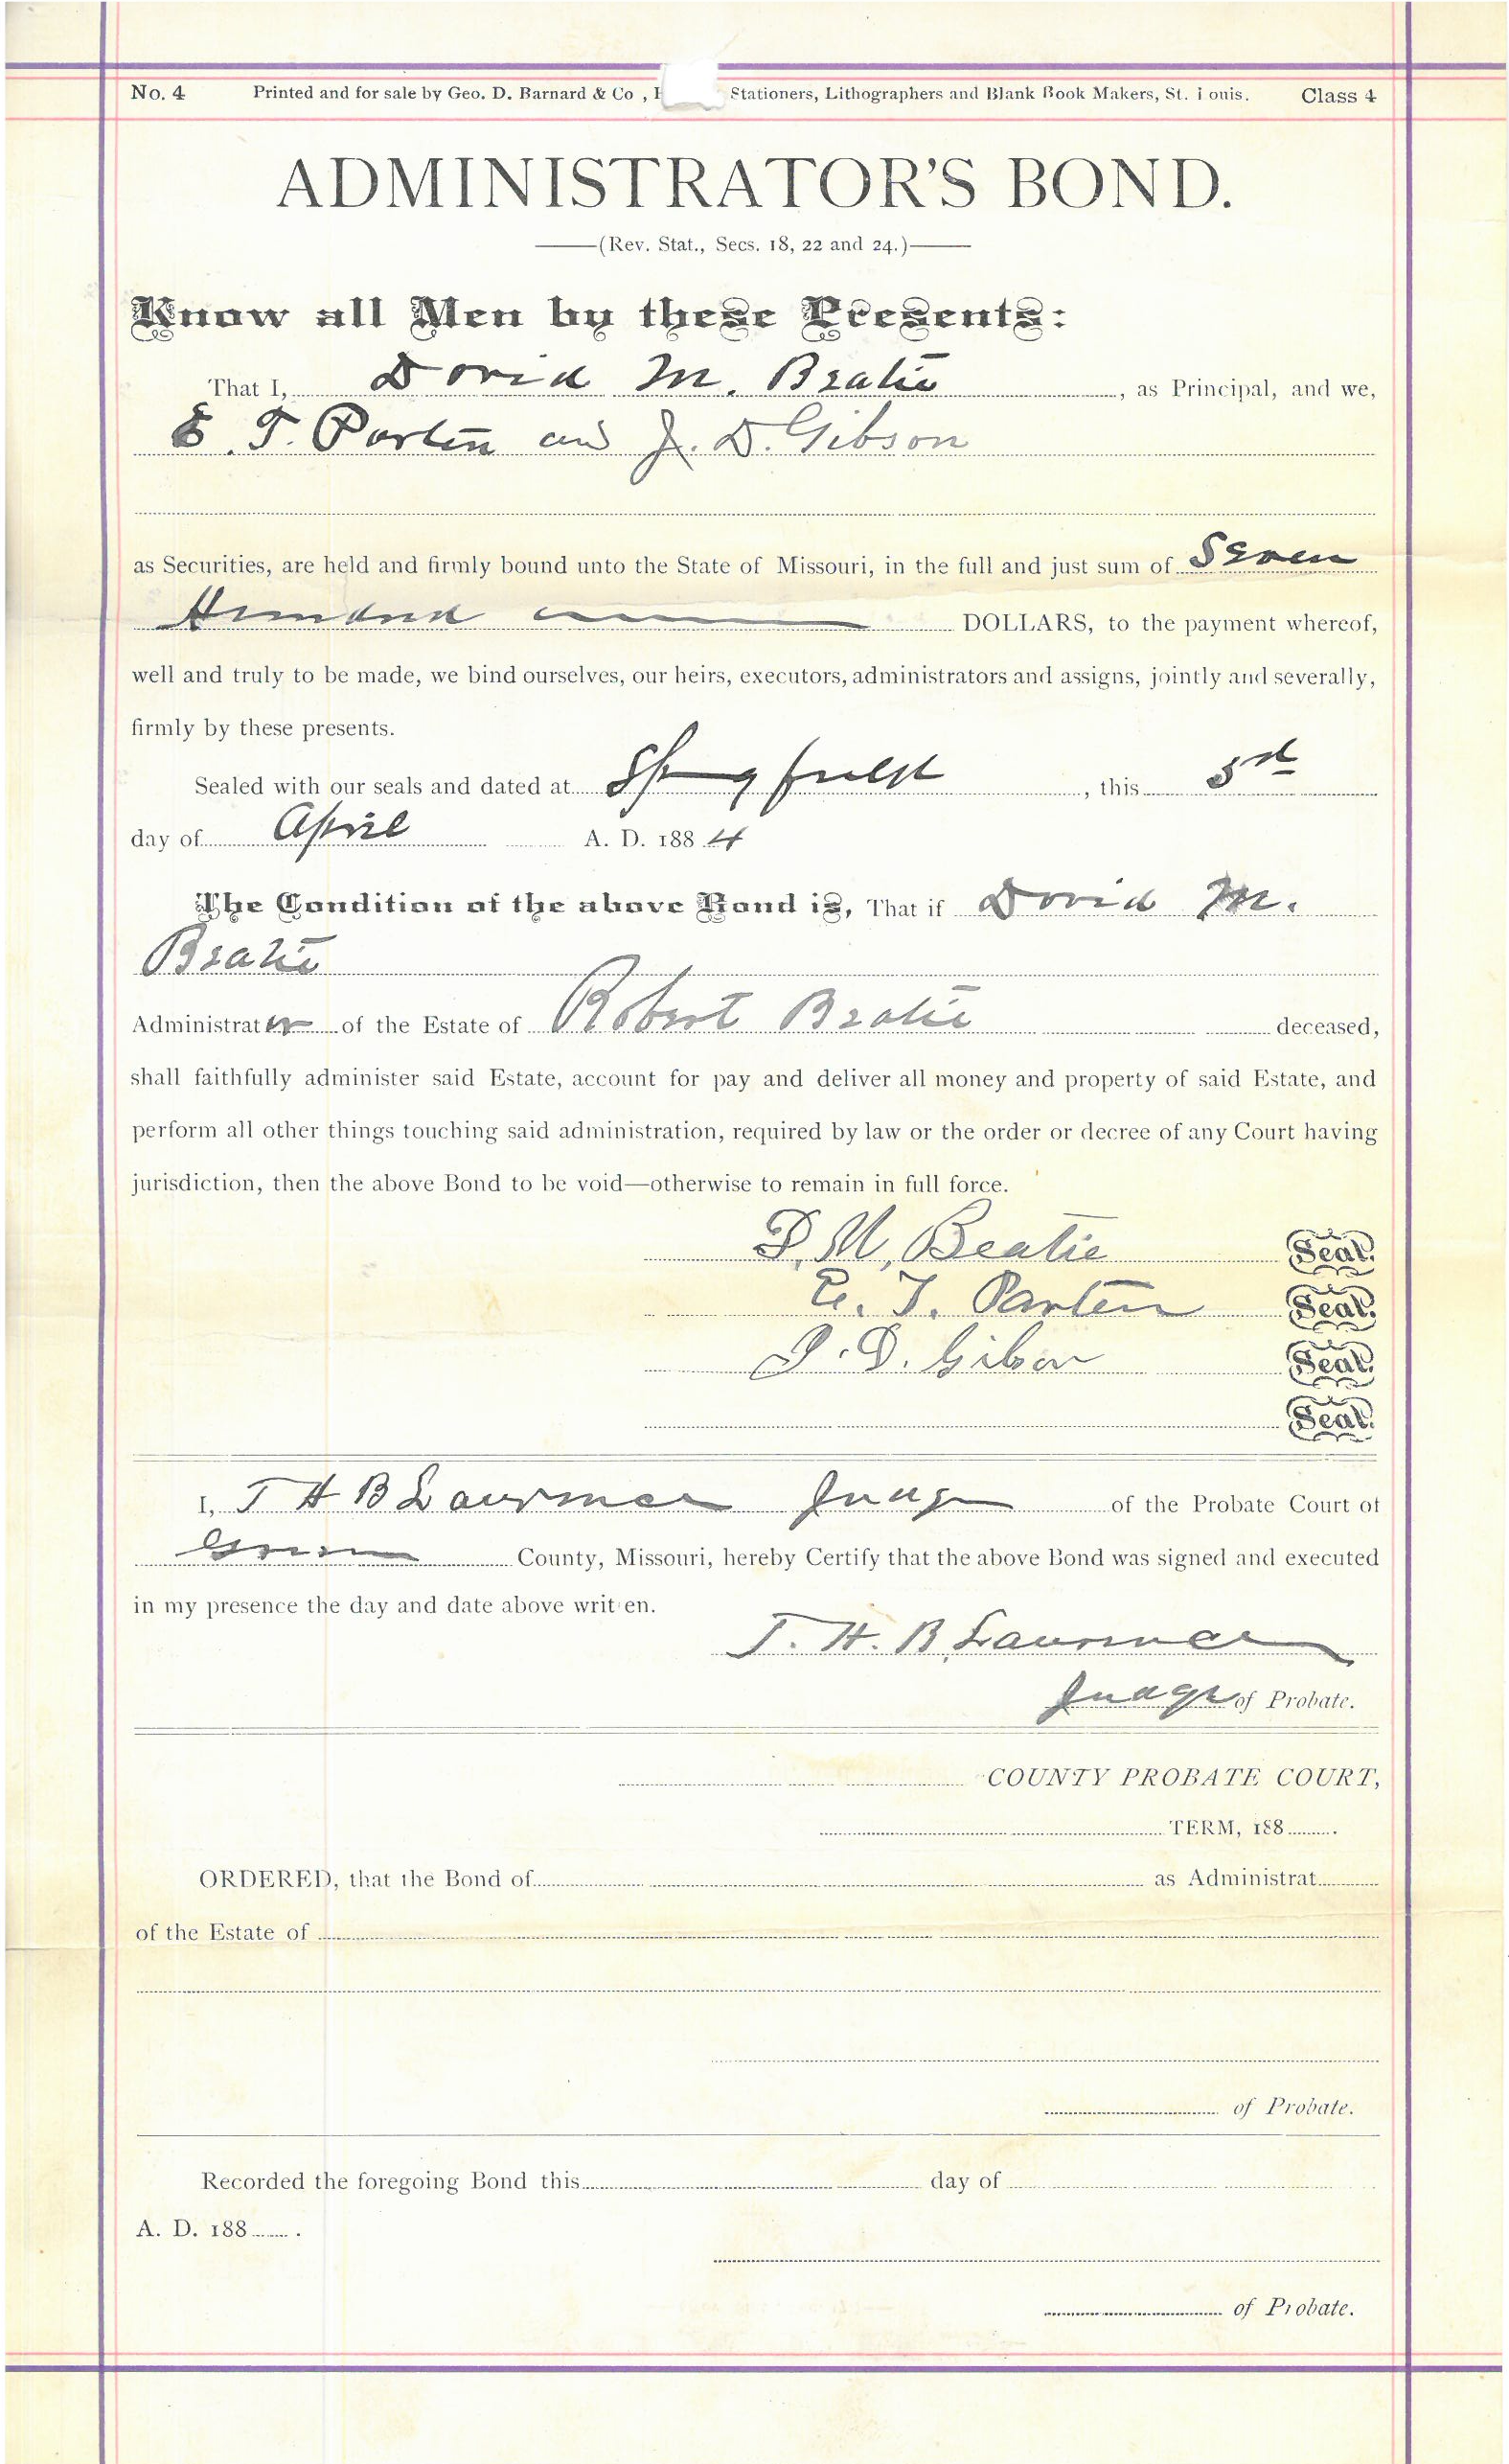 No. 4 Printed and for sale by Geo. D. Barnard & Co , Stationers, Lithographers and Blank Book Makers, St. Louis. Class 4
ADMINISTRATOR'S BOND.
(Rev. Stat., Secs. 18, 22 and 24.)
Know all Men by these Presents:
That I, David M. Beatie, as Principal, and we,
E. T. Parten and J. D. Gibson
as Securities, are held and firmly bound unto the State of Missouri, in the full and just sum of Seven
Hundred DOLLARS, to the payment whereof,
well and truly to be made, we bind ourselves, our heirs, executors, administrators and assigns, jointly and severally,
firmly by these presents.
Sealed with our seals and dated at Springfield, this 3rd
day of April A. D. 1884
The Condition of the above Bond is, That if David M.
Beatie
Administrator of the Estate of Robert Beatie deceased,
shall faithfully administer said Estate, account for pay and deliver all money and property of said Estate, and
perform all other things touching said administration, required by law or the order or decree of any Court having
jurisdiction, then the above Bond to be void—otherwise to remain in full force.
D. M. Beatie Seal.
E. T. Parten Seal.
J. D. Gibson Seal.
Seal.
I, T H B Lawrence Judge of the Probate Court of
Greene County, Missouri, hereby Certify that the above Bond was signed and executed
in my presence the day and date above writ en.
T. H. B. Lawrence
Judge of Probate.
COUNTY PROBATE COURT,
TERM, 188 .
ORDERED, that the Bond of as Administrat
of the Estate of
of Probate.
Recorded the foregoing Bond this day of
A. D. 188 .
of Probate.